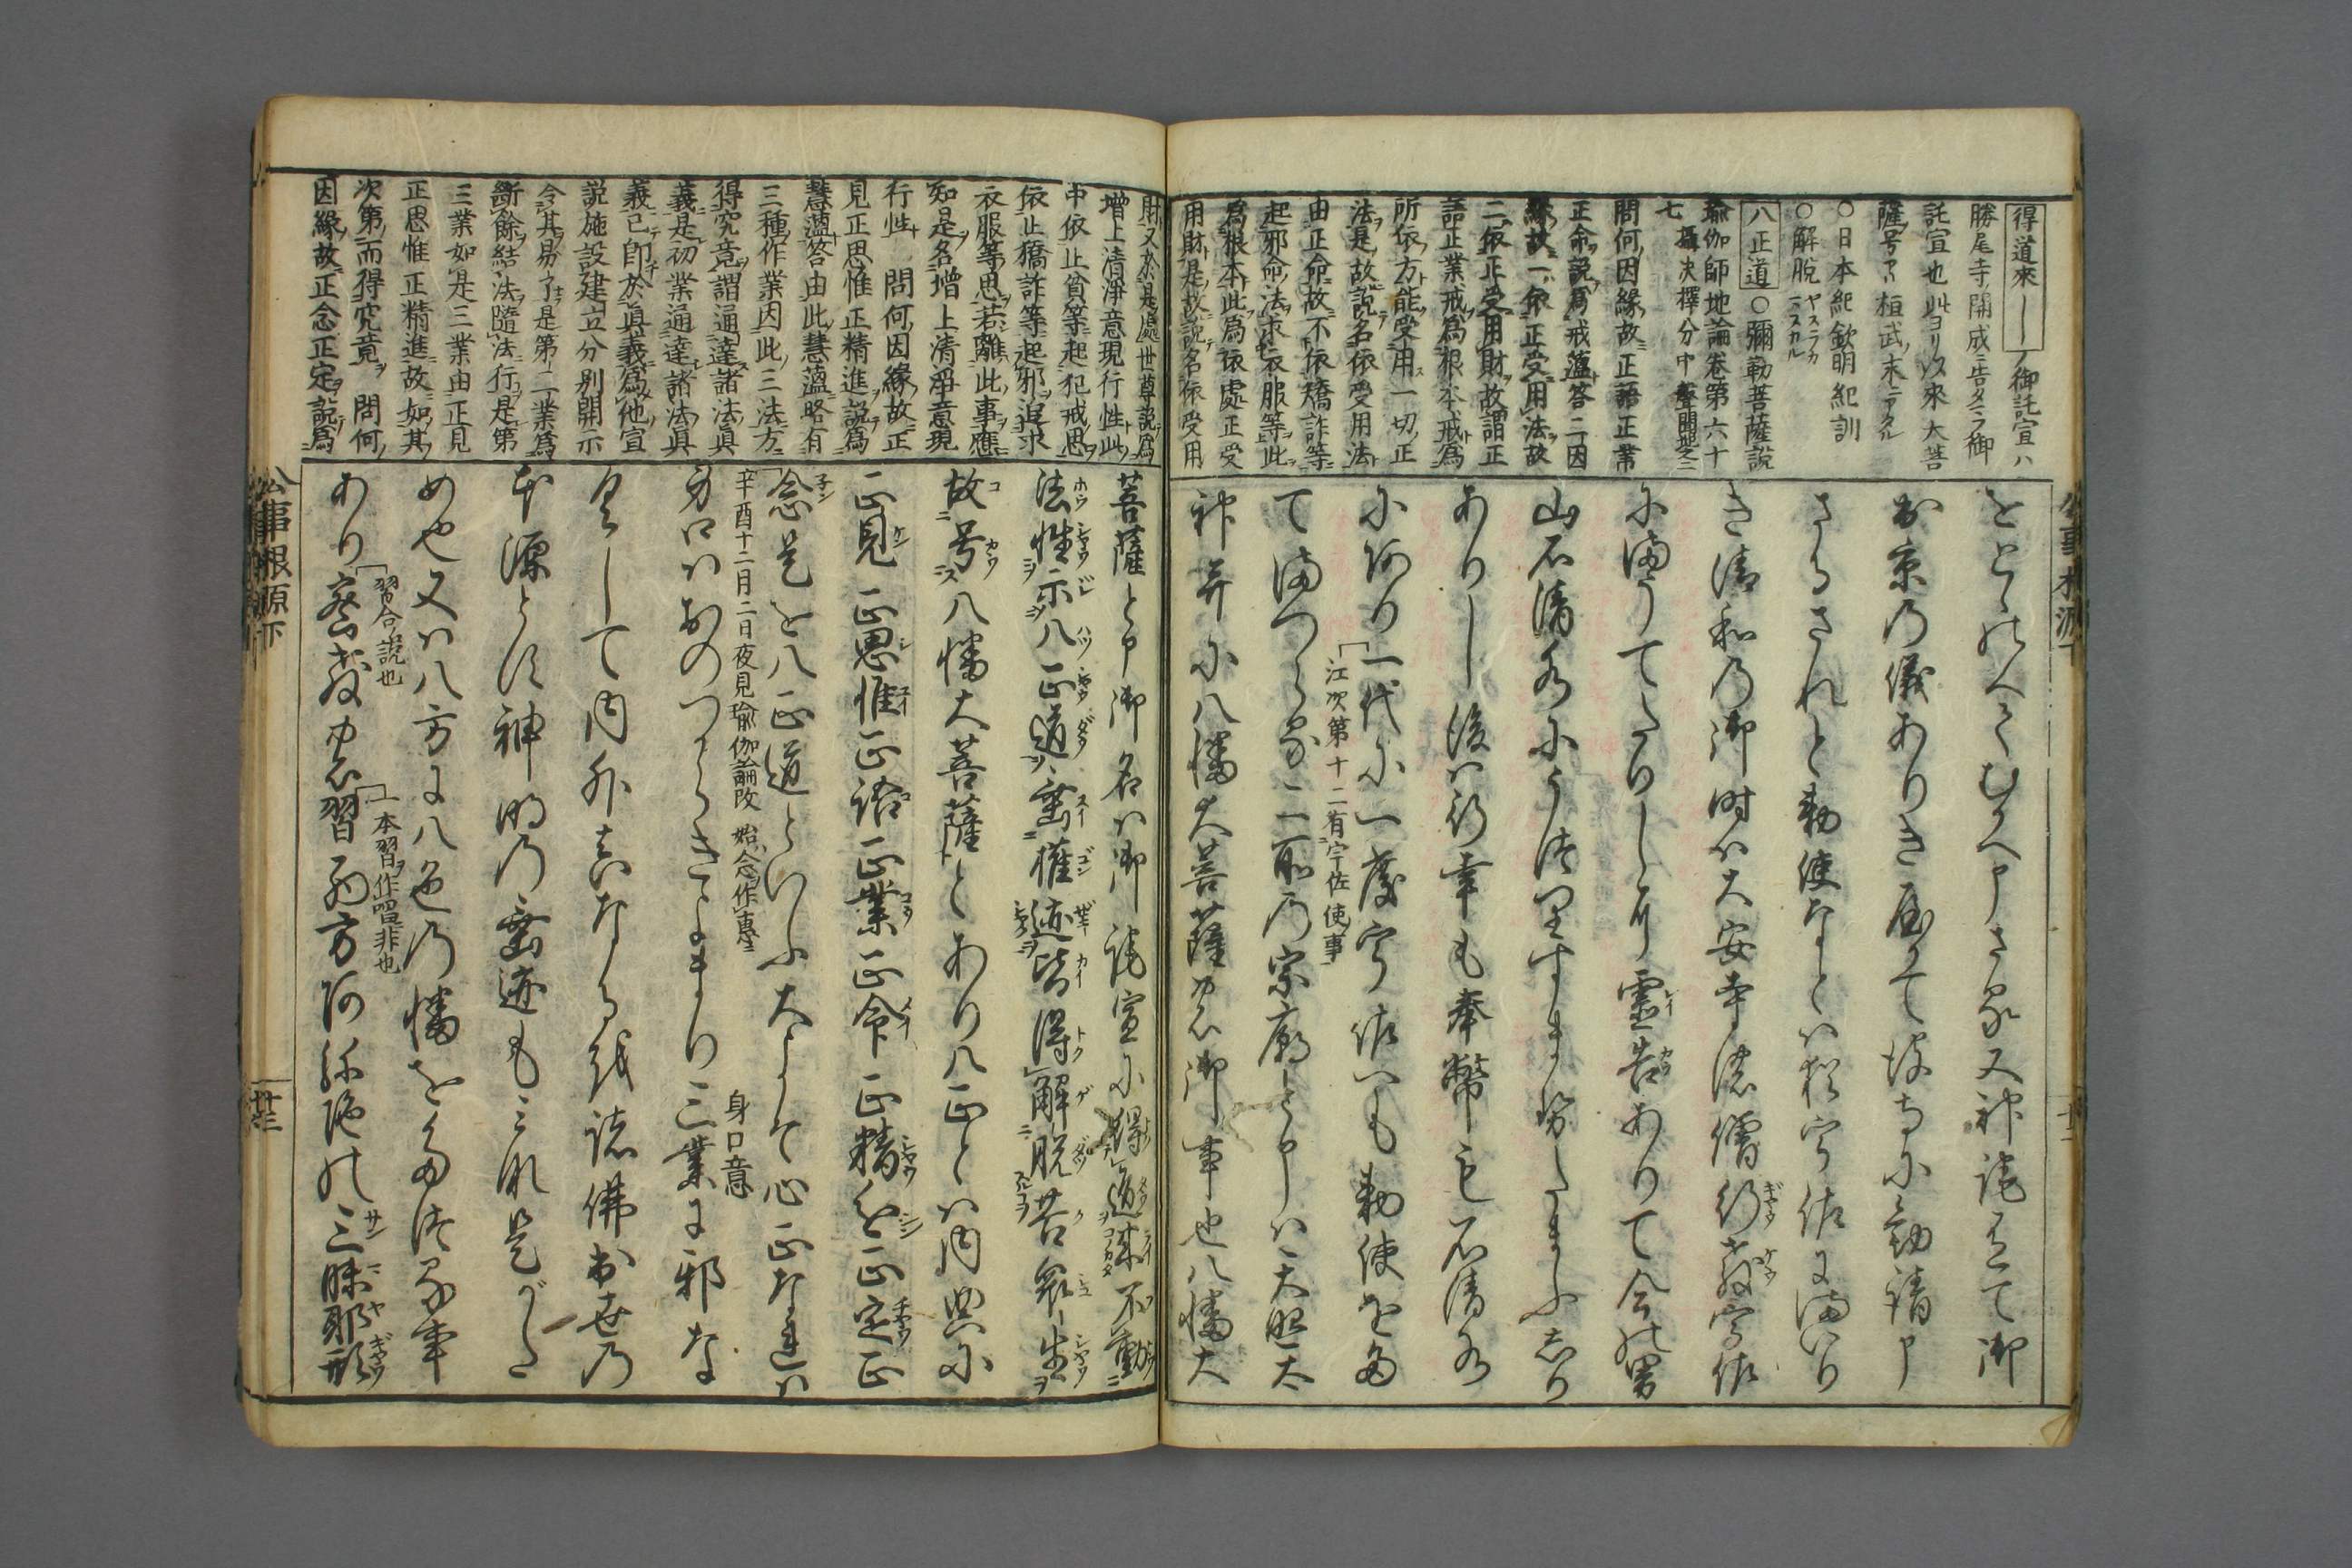 得道來――ノ御託宣ハ
勝尾寺ノ開成ニ告タマフ御
託宣也此ヨリ以來大菩
薩号アリ桓武ノ末ニアタル
○日本紀欽明紀訓
○解脫 ヤスラカニヌカル
八正道 ○彌勒菩薩說
瑜伽師地論卷第六十
七 攝決擇分中聲聞地之二
問何因緣故正語正業
正命說爲戒蘊答二因
緣故一依正受用法故
二依正受用財故謂正
語正業戒爲根本戒爲
所依方能受用一切正
法是故說名依受用法
由正命故不依矯詐等
起邪命法求衣服等此
爲根本此爲依處正受
用財是故說名依受用
をとゝのへてむかへ申さる又神託有て御
出京乃儀ありき仍て彼寺に勸請申
さるされと勅使なとは猶宇佐にまいり
き淸和乃御時に大安寺淨僧行敎宇佐
にまうてたりしに靈告ありて今の男
山石淸水にうつりすませたまふ
ありし後は行幸も奉幣も石淸水
にあり一代に一度宇佐へも勅使をた
江次第十二有宇佐使事
てまつらる二所乃宗廟と申は天照太
神并に八幡大菩薩の御事也八幡大
財又於是處世尊說爲
增上淸淨意現行性此
中依止貧等起犯戒思
依止矯詐等起邪追求
衣服等思若離此事應
知是名增上淸淨意現
行性 問何因緣故正
見正思惟正精進說爲
慧蘊答由此慧蘊略有
三種作業因此三法方
得究竟謂通達諸法眞
義是初業通達諸法眞
義已卽於眞義爲他宣
說施設建立分別開示
令其易了是第二業爲
斷餘結法隨法行是第
三業如是三業由正見
正思惟正精進故如其
次第而得究竟 問何
因緣故正念正定說爲
菩薩と申御名は御託宣に得道來不動
法性示八正道垂權迹皆得解脫苦衆生
故号八幡大菩薩とあり八正とは內典に
正見正思惟正語正業正命正精進正定正
念是を八正道といふ大よそ心正なれは
辛酉十二月二日夜見瑜伽論改始念作惠
身口はおのつからきよまり三業に邪な
身口意
くして內外眞なるを諸佛出世乃
本源とす神明乃垂迹も又是がた
め也又は八方に八色乃幡をたつる事
あり密敎の習西方阿弥陀の三昧耶形
習合ノ說也
一本習ヲ作習非也
公事根源下
廿二